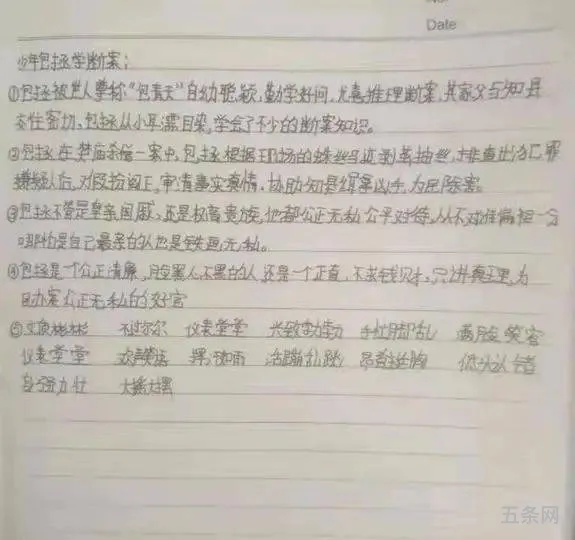 Date
少年包拯学断案:
①包拯被世人尊称"包青天"自幼聪颖,勤学好问,尤喜推理断案,其家父与知县
交往密切,包拯从小耳濡目染,学会了不少的断案知识。
②包拯在焚庙杀僧一案中,包拯根据现场的蛛丝马迹剥茧抽丝,排查出犯罪
嫌疑人后,对役扮阎王,审清事实真情,协助知县缉拿凶手,为民除害。
③包拯不管是皇亲国戚,还是权贵贵族,他都公正无私公平对待,从不对任偏袒一分
哪怕是自己最亲的人也是铁面无私。
④包拯是一个公正清廉,脸黑人不黑的人还是一个正直,不求钱财,只讲真理,为
民办案公正无私的好官
⑤文质彬彬 不过尔尔 仪表堂堂 兴致勃勃 手忙脚乱 满脸笑容
仪表堂堂 欢声笑语 活蹦乱跳 昂首挺胸 低头认错
身强力壮 大摇大摆
五条网